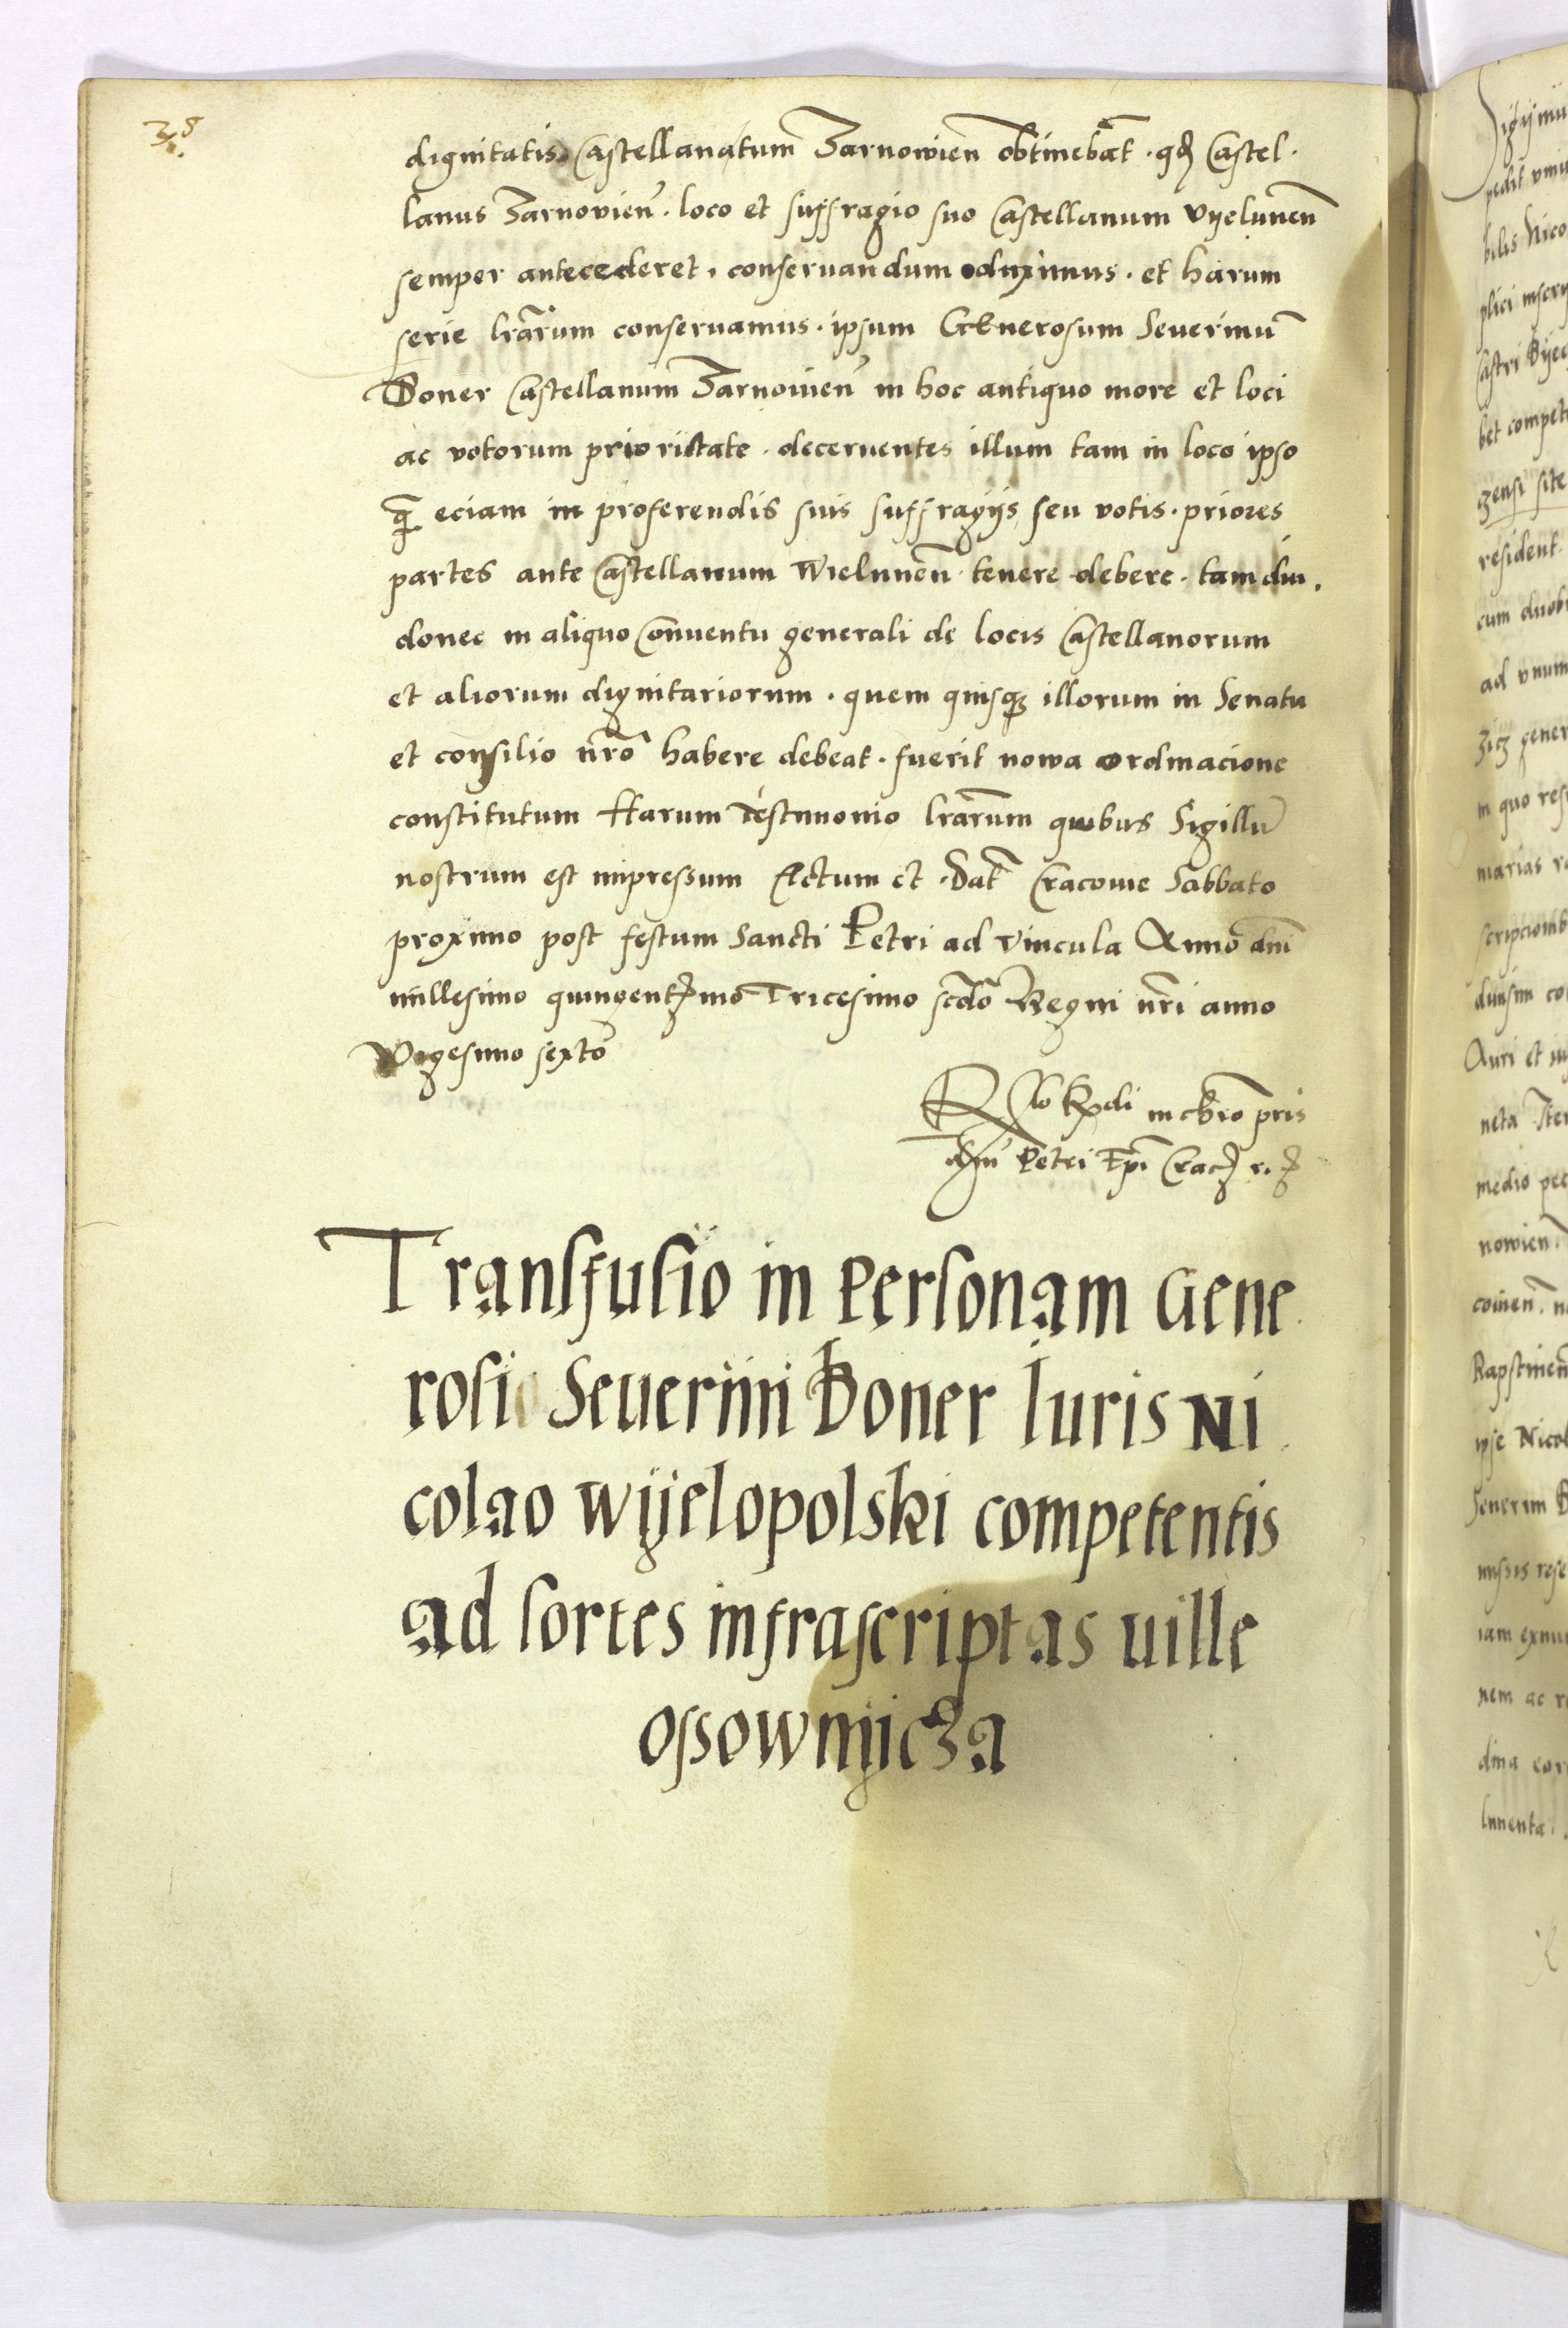 38
dignitatis Castellanatum Zarnowieñ obtinebat̃ . qđ Castel.
lanus Zarnovieñ . loco et suffragio suo Castellanum Vyeluneñ
semper antecederet . conseruandum duximus . et harum
serie lrãrum conseruamus . ipsum GEnerosum Seuerinũ
Boner Castellanum Zarnovieñ in hoc antiquo more et loci
ac votorum prioritate . decernentes illum tam in loco ipso
q̃ eciam in proferendis suis suffragijs seu votis . priores
partes ante Castellanum Wieluneñ tenere debere . tam diu .
donec in aliquo Conuentu generali de locis Castellanorum
et aliorum dignitariorum . quem quisqꝫ illorum in Senatu
et consilio nrõ habere debeat . fuerit nowa ordinacione
constitutum Harum testimonio lrãrum quibus Sigillũ
nostrum est impressum Actum et Dat̃ Cracovie Sabbato
proximo post festum Sancti Petri ad Vincula Anno dnĩ
millesimo quingentꝫmo Tricesimo scđo Regni nrĩ anno
Vigesimo sexto
Rlo Rxdi in chrõ pris
dnĩ Petri Epĩ Cracꝫ r. ꝫ
Transfusio in Personam Gene
rosi Seuerini Boner Iuris Ni
colao Wyelopolski competentis
ad sortes infrascriptas uille
Ossownijcza
Sigijmu
pedit vniu
bilis Nico
plici inscry
Castri Byec
bet compet
zensi site
resident
cum duob
ad vnum
zicz gener
in quo res
marias r
scripcionib
diuisim co
Auri et m
neta Iter
medio pec
nowien
coinen . n
Rapstinen
ipse Nicol
Seuerin B
missis rese
iam exnu
nem ac r
dina cor
lumenta .